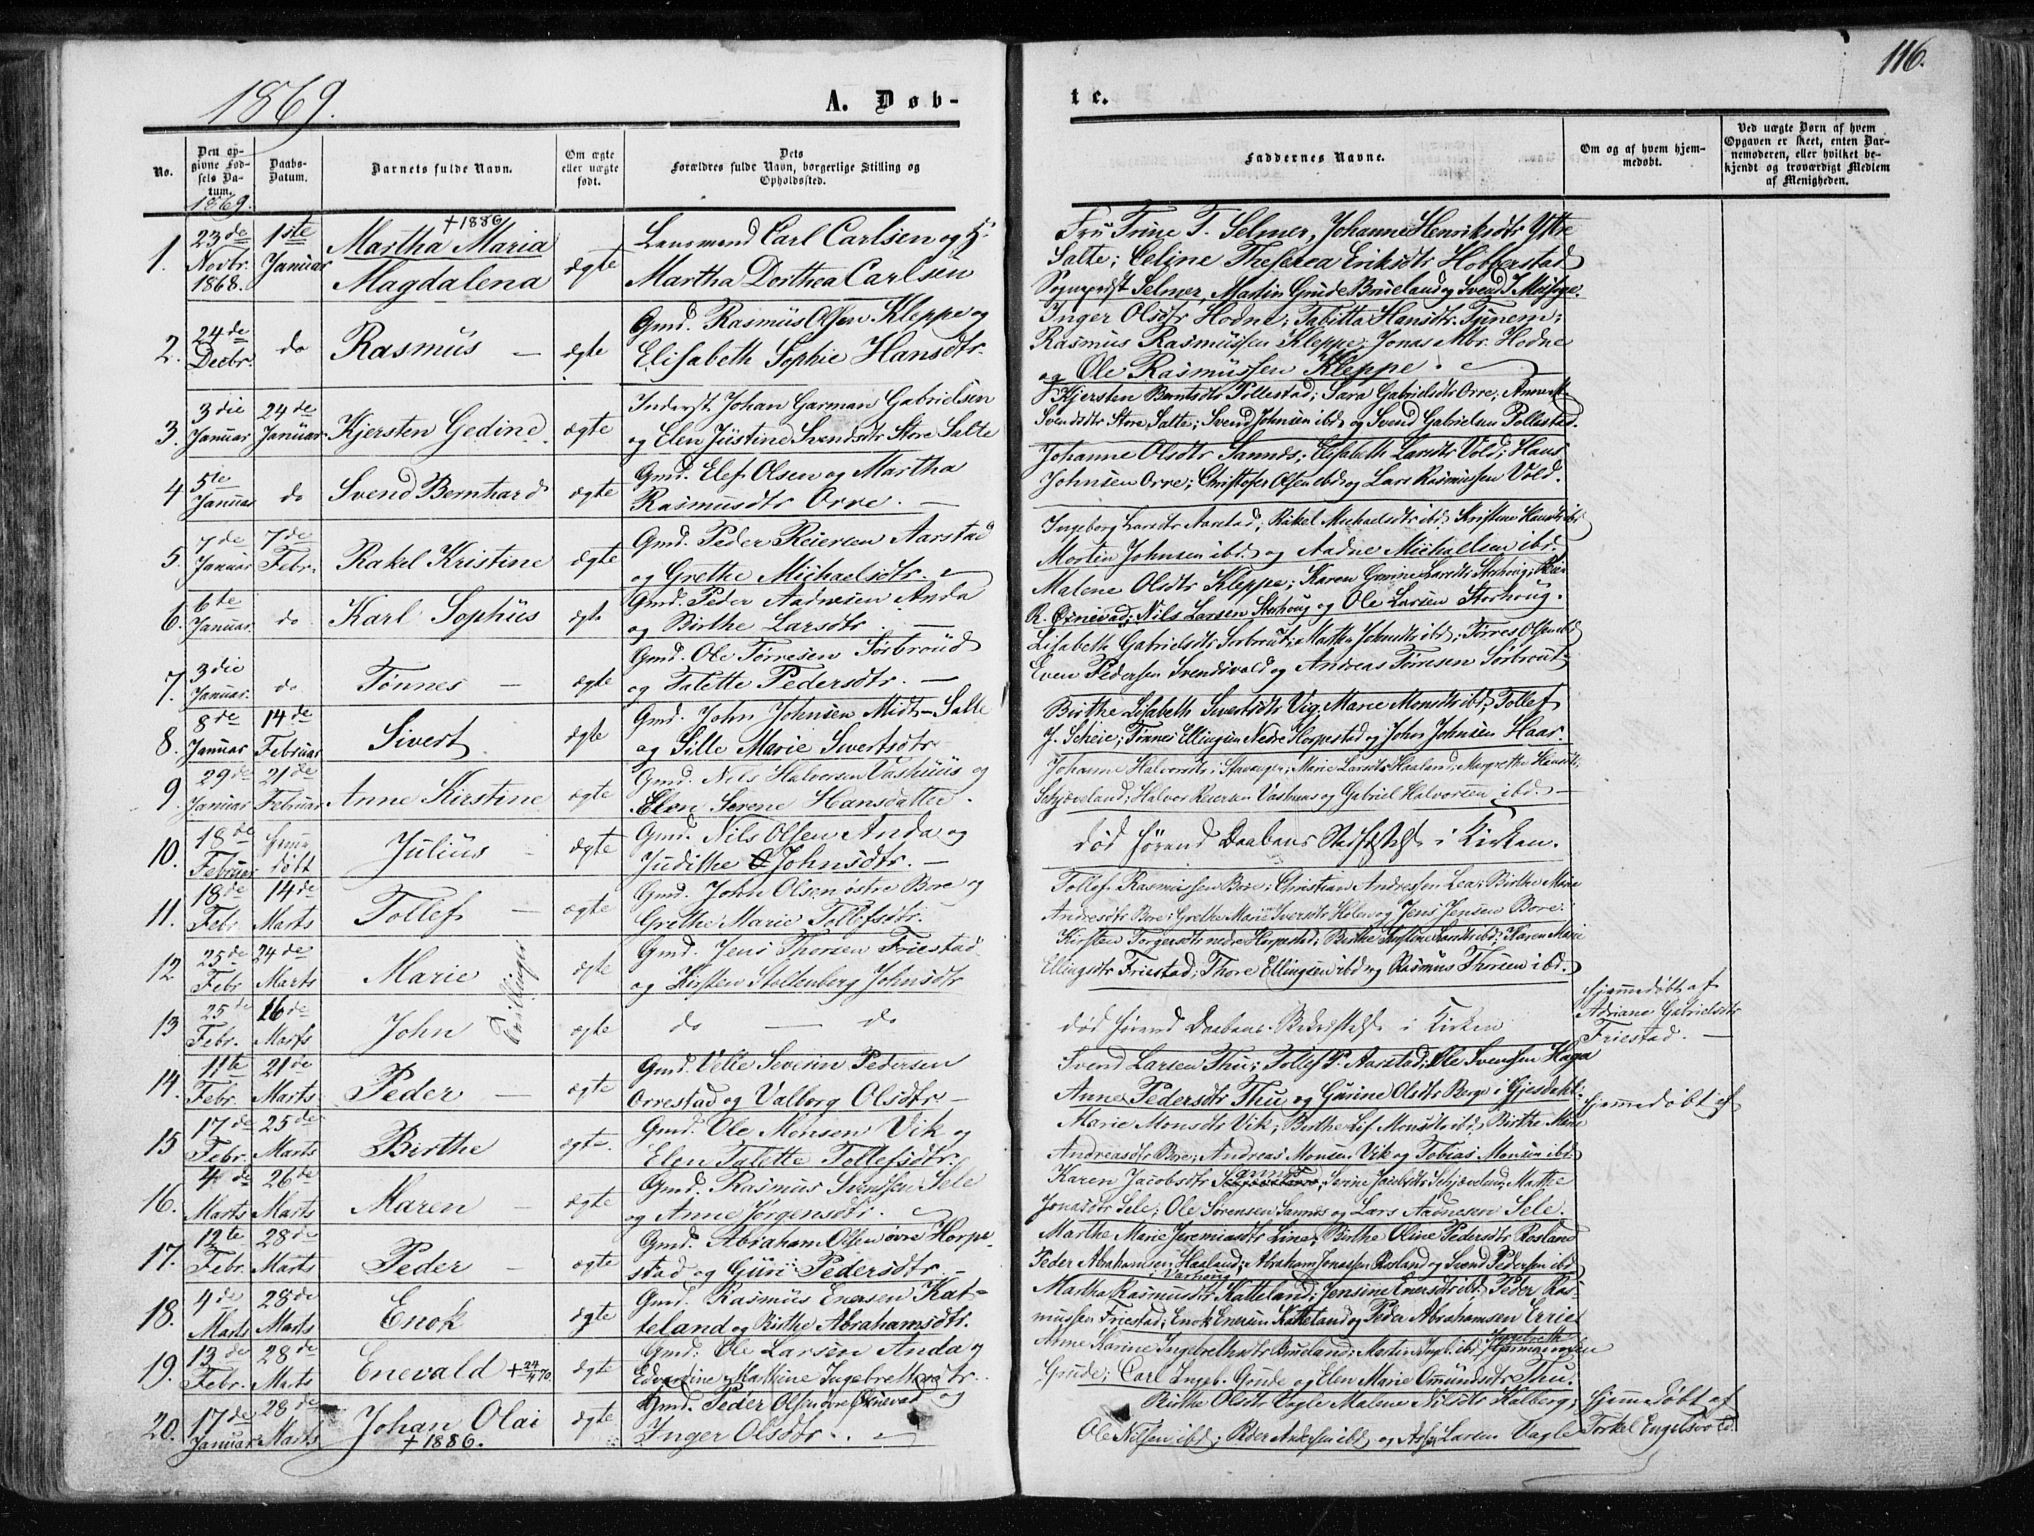 1869.
A. Døb-
te.
116.
No.
Den op-
givne Fød-
sels Da-
tum.
1869.
Daabs-
Datum.
Barnets fulde Navn.
Om ægte
eller uægte
født.
Dets
Forældres fulde Navn, borgerlige Stilling og
Opholdssted.
Faddernes Navne.
Om og af hvem hjem-
medøbt.
Ved uægte Børn af hvem
Opgaven er skeet, enten Bar-
nemoderen, eller hvilket be-
kjendt og troværdigt Medlem
af Menigheden.
1. 23de Novbr. 1868. 1ste Januar
+1886
Martha Maria
Magdalena
ægte
Lensmand Carl Carlsen og H.
Martha Dorthea Carlsen
Fru Trine T. Selmer, Johanne Henriksdtr Ytre
Salte; Celine Theserea Eriksdtr Hobberstad
Sognepst Selmer, Martin Grude Brueland og Svend J.
2. 24de Decbr. do Rasmus — ægte
Gmd. Rasmus Olsen Kleppe og
Elisabeth Sophie Hansdtr.
Inger Olsdtr Hodne; Tabitta Hansdtr. Tjunem;
Rasmus Rasmussen Kleppe, Jonas Mbr. Hodne
og Ole Rasmussen Kleppe.
3. 3die Januar 24de Januar Kjersten Gedine. ægte
Inderst Johan Garman Gabrielsen
og Elen Justine Svendsdtr Store Salte
Kjersten Berntsdtr Pollestad; Sara Gabrielsdtr Orre;
Svendsdtr Store Salte; Svend Johnsen ibd og Svend Gabrielsen Pollestad.
4 5te Januar do Svend Bernhard ægte
Gmd. Elef Olsen og Martha
Rasmusdtr Orre. —
Johanne Olsdtr Sannes; Elisabeth Larsdtr Vold; Hans
Johnsen Orre; Christofer Olsen ibd og Lars Rasmussen Vold.
5. 7de Januar 7de Febr. Rakel Kristine ægte
Gmd. Peder Reiersen Aarstad
og Grethe Michaelsdtr.
Ingeborg Larsdtr Aarstad; Rakel Michaelsdtr ibd. Kristine Hansdtr ibd
Morten Johnsen ibd. og Aadne Michaelsen ibd.
6. 6te Januar. do. Karl Sophus ægte
Gmd. Peder Aadnesen Anda
og Birthe Larsdtr. —
Malene Olsdtr Kleppe; Karen Larsdtr Storhoug;
R. Øxnevad; Nils Larsen Storhoug og Ole Larsen Storhoug.
7. 3die Januar. do Tønnes — ægte
Gmd. Ole Tørresen Sørbroud
og Talette Pedersdtr. —
Lisabeth Gabrielsdtr Sørbrout; Martha Johnsdtr ibd; Tørres Olsen ibd
Even Pedersen Svendsvold og Andreas Tørresen Sørbrout
8. 8de Januar 14de Februar Sivert ægte
Gmd. John Johnsen Midt-Salte
og Sille Marie Sivertsdtr
Birthe Lisabeth Sivertsdtr Vig; Marie Monsdtr ibd; Tollef
J. Scheie; Tønnes Ellingsen Nedre Horpestad og John Johnsen Haar
9. 29de Januar 21de Februar Anne Kirstine ægte
Gmd. Nils Halvorsen Vashuus og
Elen Serene Hansdatter.
Johanne Halvorsdtr. Stavanger; Marie Larsdtr Haaland; Margrethe Hansdtr;
Schjæveland; Halvor Reiersen Vashuus og Gabriel Halvorsen ibd. —
10. 18de Februar døbt Julius — ægte
Gmd. Nils Olsen Anda og
Judithe Johnsdtr. —
død førend Daabens Stadfæstelse i Kirken.
11. 18de Febr. 14de Marts Tollef — ægte
Gmd. John Olsen østre Bore og
Grethe Marie Tollefsdtr.
Tollef Rasmussen Bore; Christian Andresen Lea; Birthe Marie
Andresdtr Bore; Grethe Marie Iversdtr Holen og Jens Jensen Bore.
12 25de Febr. 24de Marts Marie
Tvillinger
ægte
Gmd. Jens Thorsen Friestad
og Kirsten Stoltenberg Johnsdtr
Kirsten Torgersdtr nedre Horpestad; Birthe Kirstine Larsdtr ibd; Karen Marie
Ellingsdtr Friestad; Thore Ellingsen ibd og Rasmus Thorsen ibd.
13 25de Febr. 16de Marts John ægte
do — do
død førend Daabens Bekræftelse i Kirken
hjemmedøbt af
Adriane Gabrielsdtr
Friestad. —
14. 11te Febr. 21de Marts Peder — ægte
Gmd. Velle Severin Pedersen
Orrestad og Valborg Olsdtr —
Svend Larsen Thu; Tollef P. Aarstad; Ole Svensen Haga
Anne Pedersdtr Thu og Gurine Olsdtr Berge i Gjesdahl.
hjemmedøbt af
15 17de Febr. 25de Marts Birthe ægte.
Gmd. Ole Monsen Vik og
Elen Talette Tollefsdtr.
Marie Monsdtr Vik; Birthe Lis. Monsdtr ibd; Birthe Marie
Andreasdtr Bore; Andreas Monsen Vik og Tobias Monsen ibd
16. 4de Marts 26de Marts Maren — ægte
Gmd. Rasmus Svendsen Sele
og Anne Jørgensdtr.
Karen Jacobsdtr Sannes; Serine Jacobsdtr Schjæveland, Marthe
Jonasdtr Sele; Ole Sørensen Sannes og Lars Aadnesen Sele.
17. 12te Febr. 28de Marts Peder — ægte
Gmd. Abraham Olsen øvre Horpe-
stad og Guri Pedersdtr. —
Marthe Marie Jeremiasdtr Line; Birthe Oline Pedersdtr Rosland
Peder Abrahamsen Haaland; Abraham Jonassen Rosland og Svend Pedersen ibd
18. 4de Marts 28de Marts Enok ægte
Gmd. Rasmus Enersen Kat-
teland og Birthe Abrahamsdtr.
Varhoug
Martha Rasmusdtr Katteland; Jensine Enersdtr ibd; Peder Ras-
mussen Friestad; Enok Enersen Katteland og Peder Abrahamsen Errie
19. 13de Febr. 28de Marts Enevald +24/4 70. ægte
Gmd. Ole Larsen Anda og
Edvardine Marthine Ingebretsdtr.
Anne Karine Ingebretsdtr Brueland; Martin Ingb. ibd,
Grude; Carl Ingeb. Grude og Elen Marie Omundsdtr Thu.
20. 17de Januar 28de Marts Johan Olai
+1886.
ægte
Gmd. Peder Olsen øvre Øxnevad og
Inger Olsdtr. —
Birthe Olsdtr Vagle Malene Nilsdtr Kalberg;
Ole Nilsen ibd; Peder Andersen ibd og Larsen Vagle
hjemmedøbt af
Torkel Engelsvold.